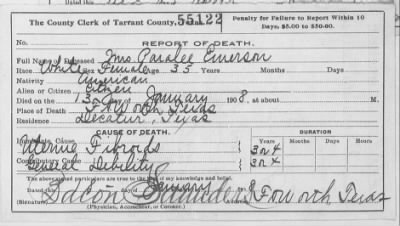 The County Clerk of Tarrant County, 55122 Penalty for Failure to Report Within 10 Days, $5.00 to $50.00.
No.
REPORT OF DEATH.
Full Name of Deceased Mrs. Paralee Emerson
Race White Female Age 35 Years Months Days
Nativity American
Alien or Citizen Citizen
Died on the 13 day of January 1908, about M.
Place of Death Ft Worth, Texas
Residence Decatur, Texas
CAUSE OF DEATH. DURATION
Immediate Cause Years Months Days Hours
Uterine Fibroids 3 or 4
Contributory Cause
General Debility 3 or 4
The above stated particulars are true to the best of my knowledge and belief.
Dated this day of January
(Signature) Bacon Saunders Ft Worth Texas
(Physician, Accoucheur, or Coroner.)